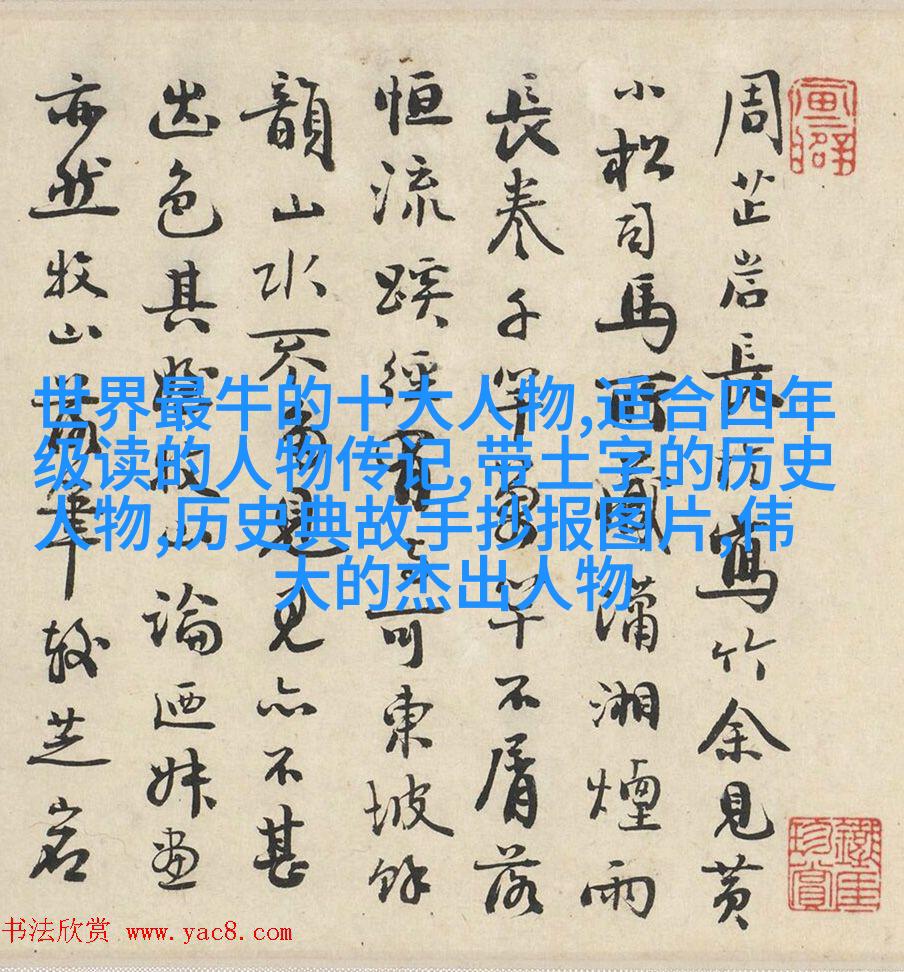 周芷岩長於寫竹余見黄
小松司馬圖瀟湘煙雨
長卷千竿萬竿不屑落
恒流蹊徑可東坡餘
韻山水不多見見亦不甚
出色其牧山論迺妹畫
亦然牧山筆較芝岩
世界最牛的十大人物,适合四年
级读的人物传记,带土字的历史
人物,历史典故手抄报图片,伟
大的杰出人物
书法欣赏 www.yac8.com